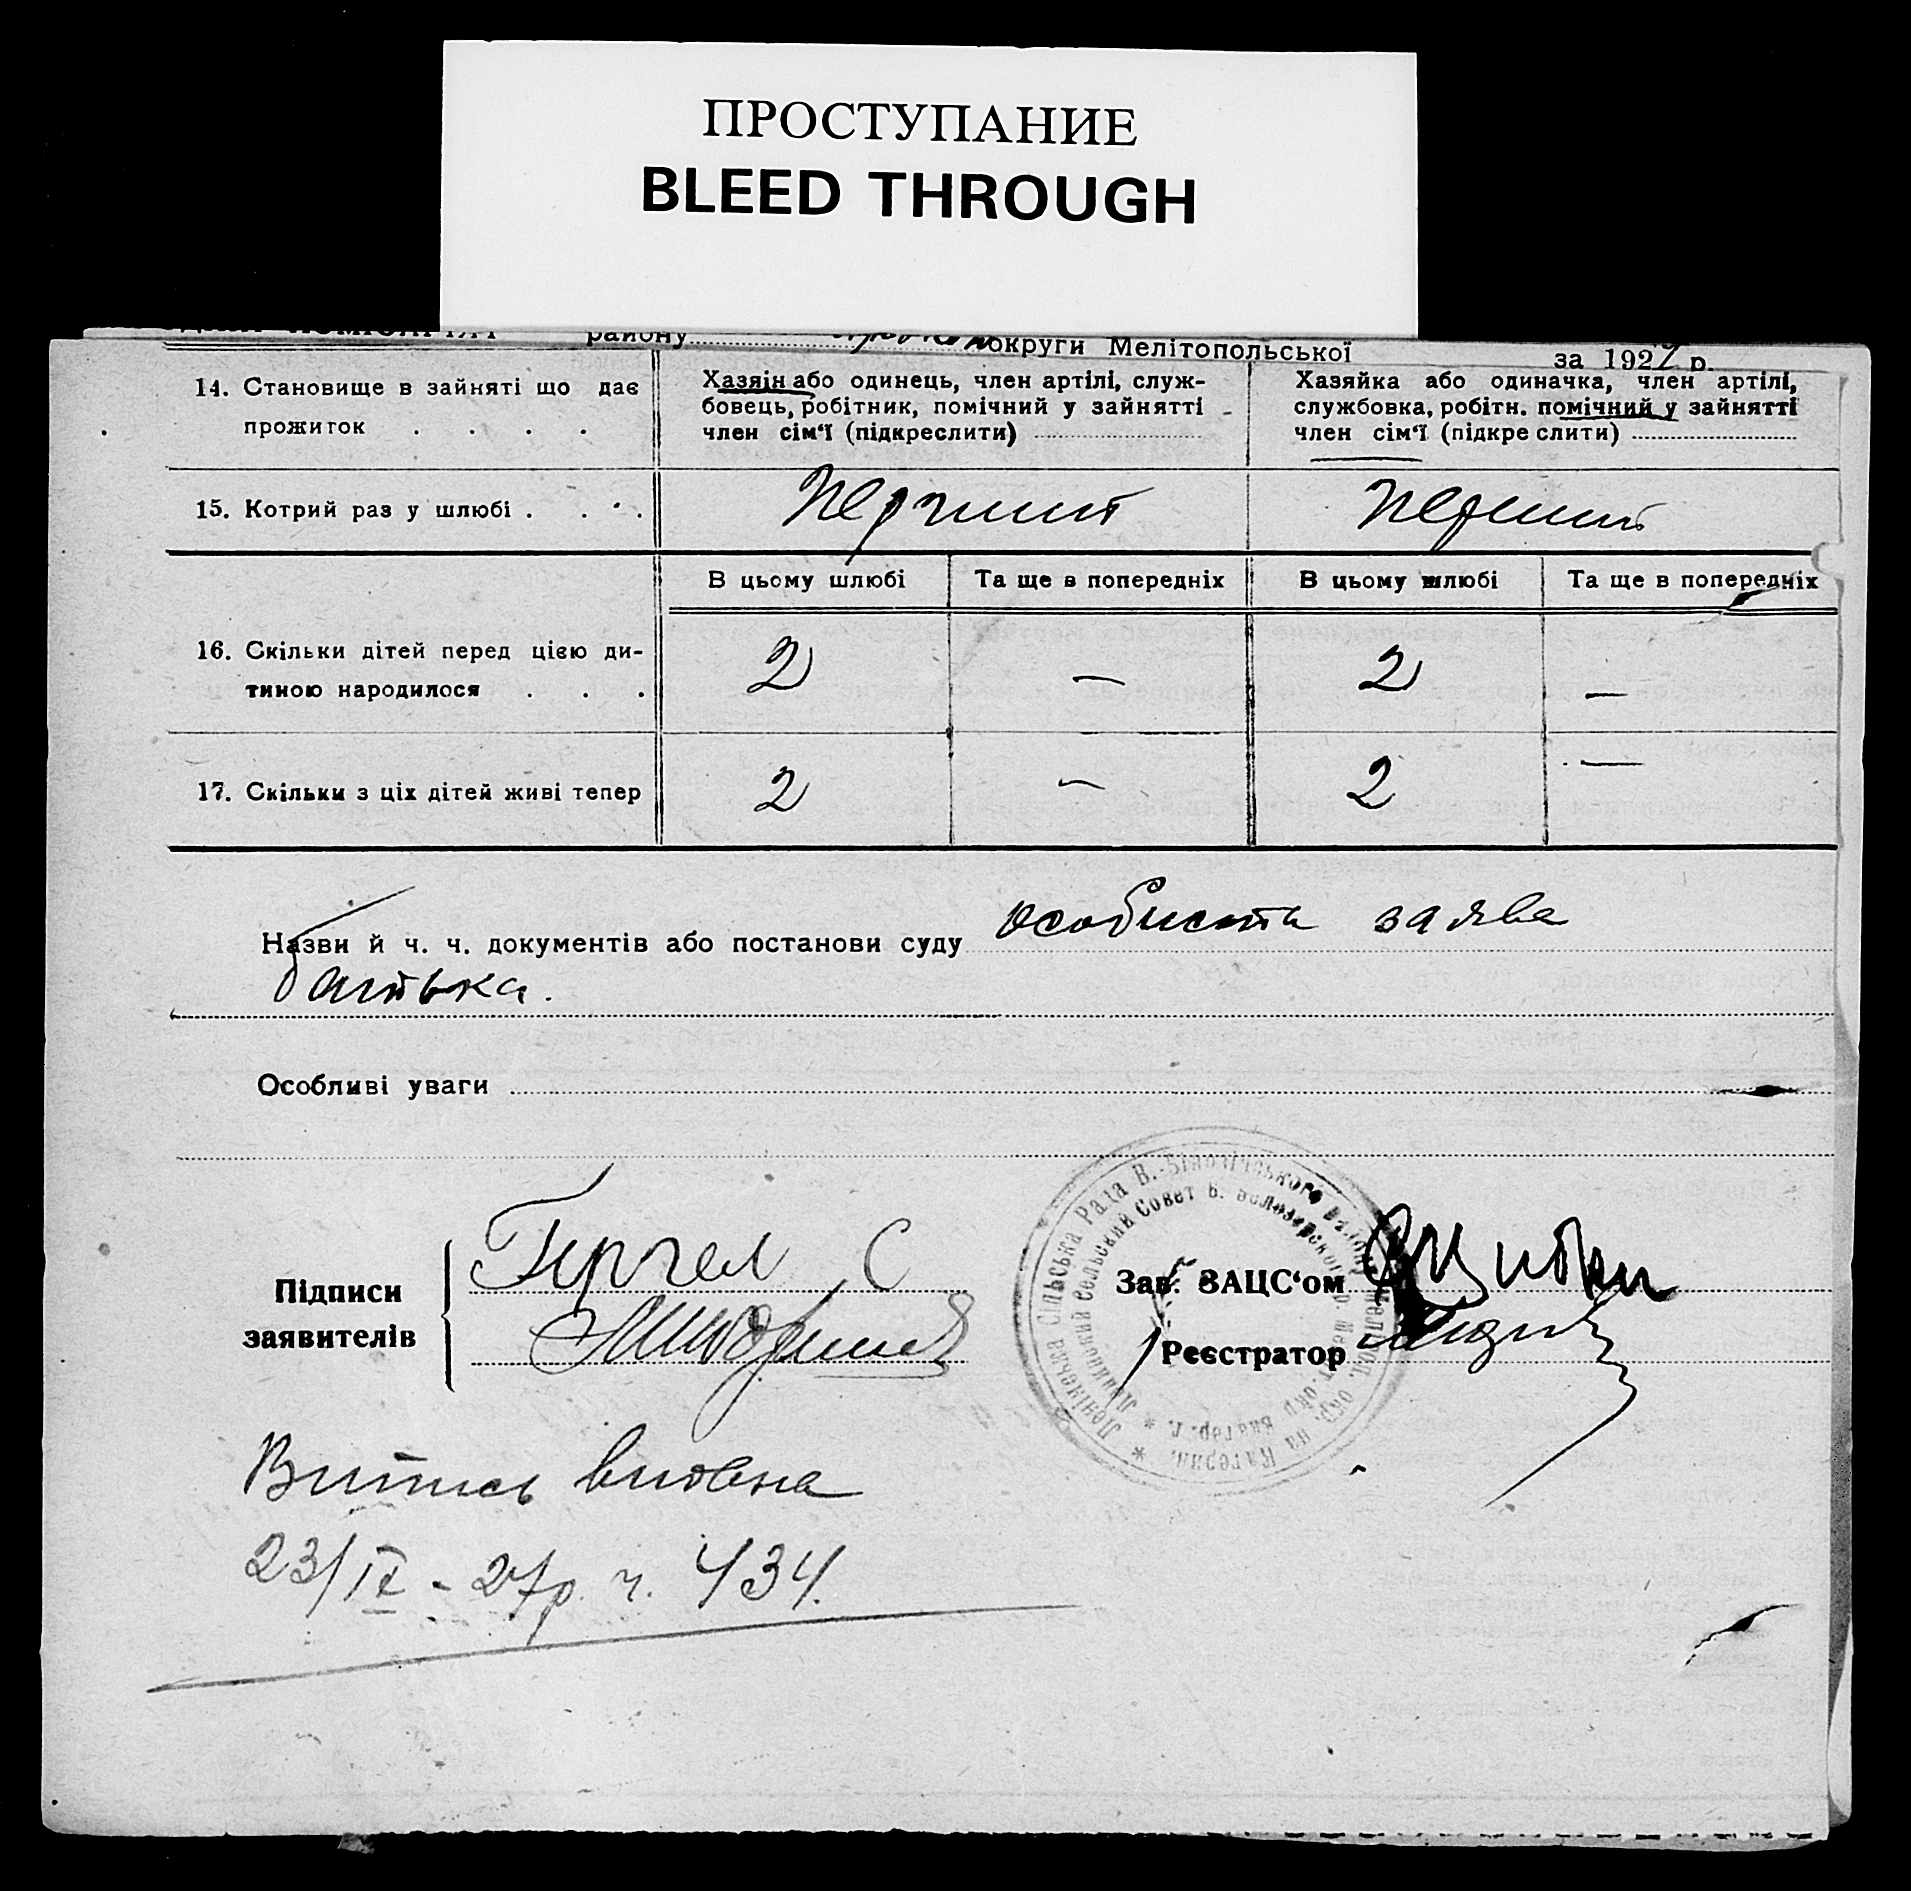 ПРОСТУПАНИЕ
BLEED THROUGH
району округи Мелітопольської за 1927 р.
14. Становище в зайняті що дає
прожиток . . . .
Хазяін або одинець, член артілі, служ-
бовець, робітник, помічний у зайнятті
член сім‘ї (підкреслити)
Хазяйка або одиначка, член артілі,
службовка, робітн. помічний у зайнятті
член сім‘ї (підкреслити)
15. Котрий раз у шлюбі . . . . Перший Перший
В цьому шлюбі Та ще в попередніх В цьому шлюбі Та ще в попередніх
16. Скільки дітей перед цією ди-
тиною народилося . . . 2 — 2 —
17. Скільки з ціх дітей живі тепер 2 — 2 —
Назви й ч. ч. документів або постанови суду особиста заява
батька.
Особливі уваги
Підписи
заявителів
Гергел С
Зав. ЗАЦС‘ом
Реєстратор
Ленінська Сільська Рада В.-Білозірського
Ленинский Сельский Совет В. Белозерского р.
Витись видана
23/IX - 27р. ч. 434.